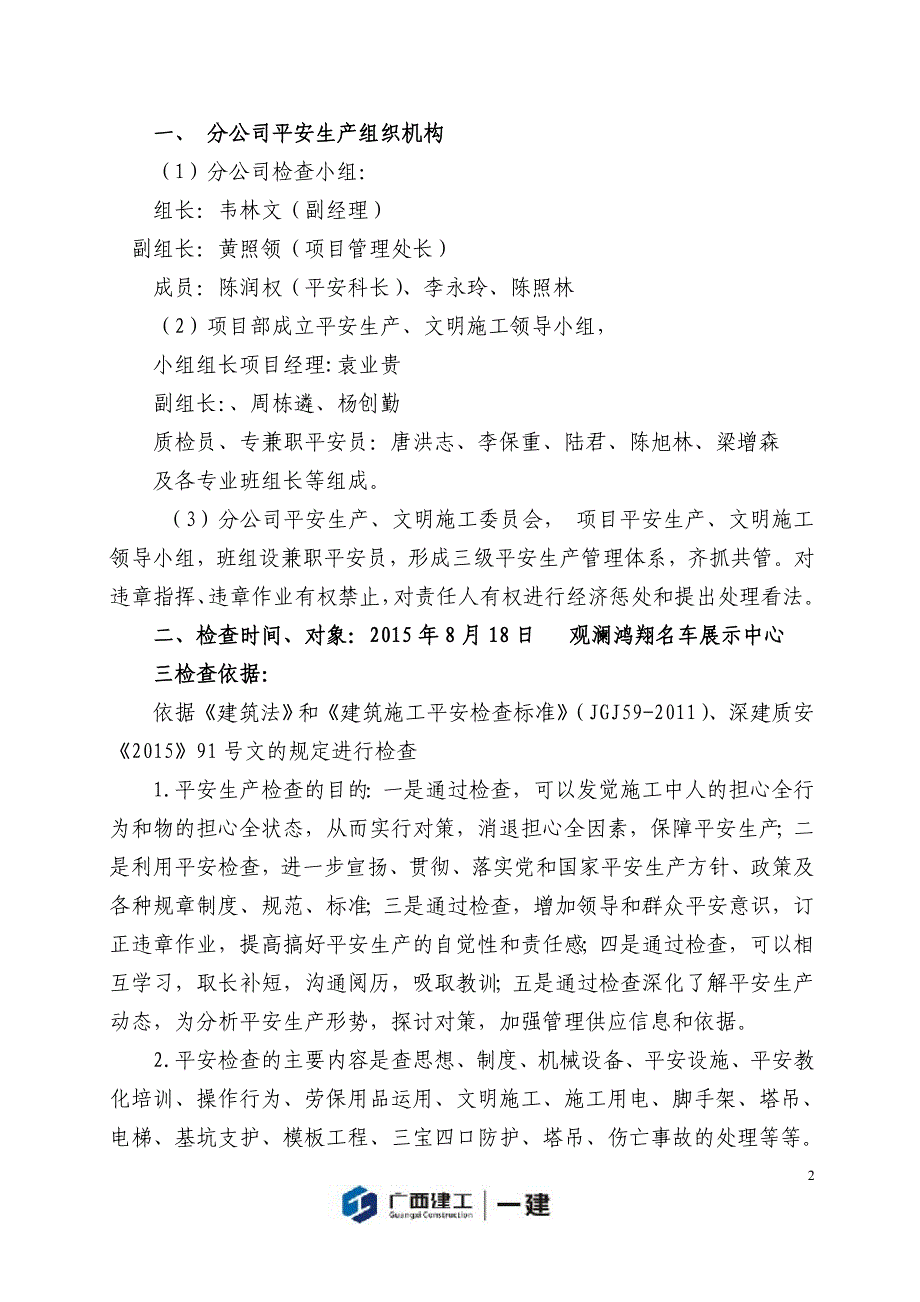 一、 分公司平安生产组织机构
（1）分公司检查小组：
组长：韦林文（副经理）
副组长：黄照领（项目管理处长）
成员：陈润权（平安科长）、李永玲、陈照林
（2）项目部成立平安生产、文明施工领导小组，
小组组长项目经理：袁业贵
副组长：、周栋遴、杨创勤
质检员、专兼职平安员：唐洪志、李保重、陆君、陈旭林、梁增森
及各专业班组长等组成。
（3）分公司平安生产、文明施工委员会， 项目平安生产、文明施工
领导小组，班组设兼职平安员，形成三级平安生产管理体系，齐抓共管。对
违章指挥、违章作业有权禁止，对责任人有权进行经济惩处和提出处理看法。
二、检查时间、对象：2015年8月18日 观澜鸿翔名车展示中心
三检查依据：
依据《建筑法》和《建筑施工平安检查标准》（JGJ59-2011）、深建质安
《2015》91号文的规定进行检查
1.平安生产检查的目的：一是通过检查，可以发觉施工中人的担心全行
为和物的担心全状态，从而实行对策，消退担心全因素，保障平安生产；二
是利用平安检查，进一步宣扬、贯彻、落实党和国家平安生产方针、政策及
各种规章制度、规范、标准；三是通过检查，增加领导和群众平安意识，订
正违章作业，提高搞好平安生产的自觉性和责任感；四是通过检查，可以相
互学习，取长补短，沟通阅历，吸取教训；五是通过检查深化了解平安生产
动态，为分析平安生产形势，探讨对策，加强管理供应信息和依据。
2.平安检查的主要内容是查思想、制度、机械设备、平安设施、平安教
化培训、操作行为、劳保用品运用、文明施工、施工用电、脚手架、塔吊、
电梯、基坑支护、模板工程、三宝四口防护、塔吊、伤亡事故的处理等等。
2
广西建工 一建
Guangxi Construction